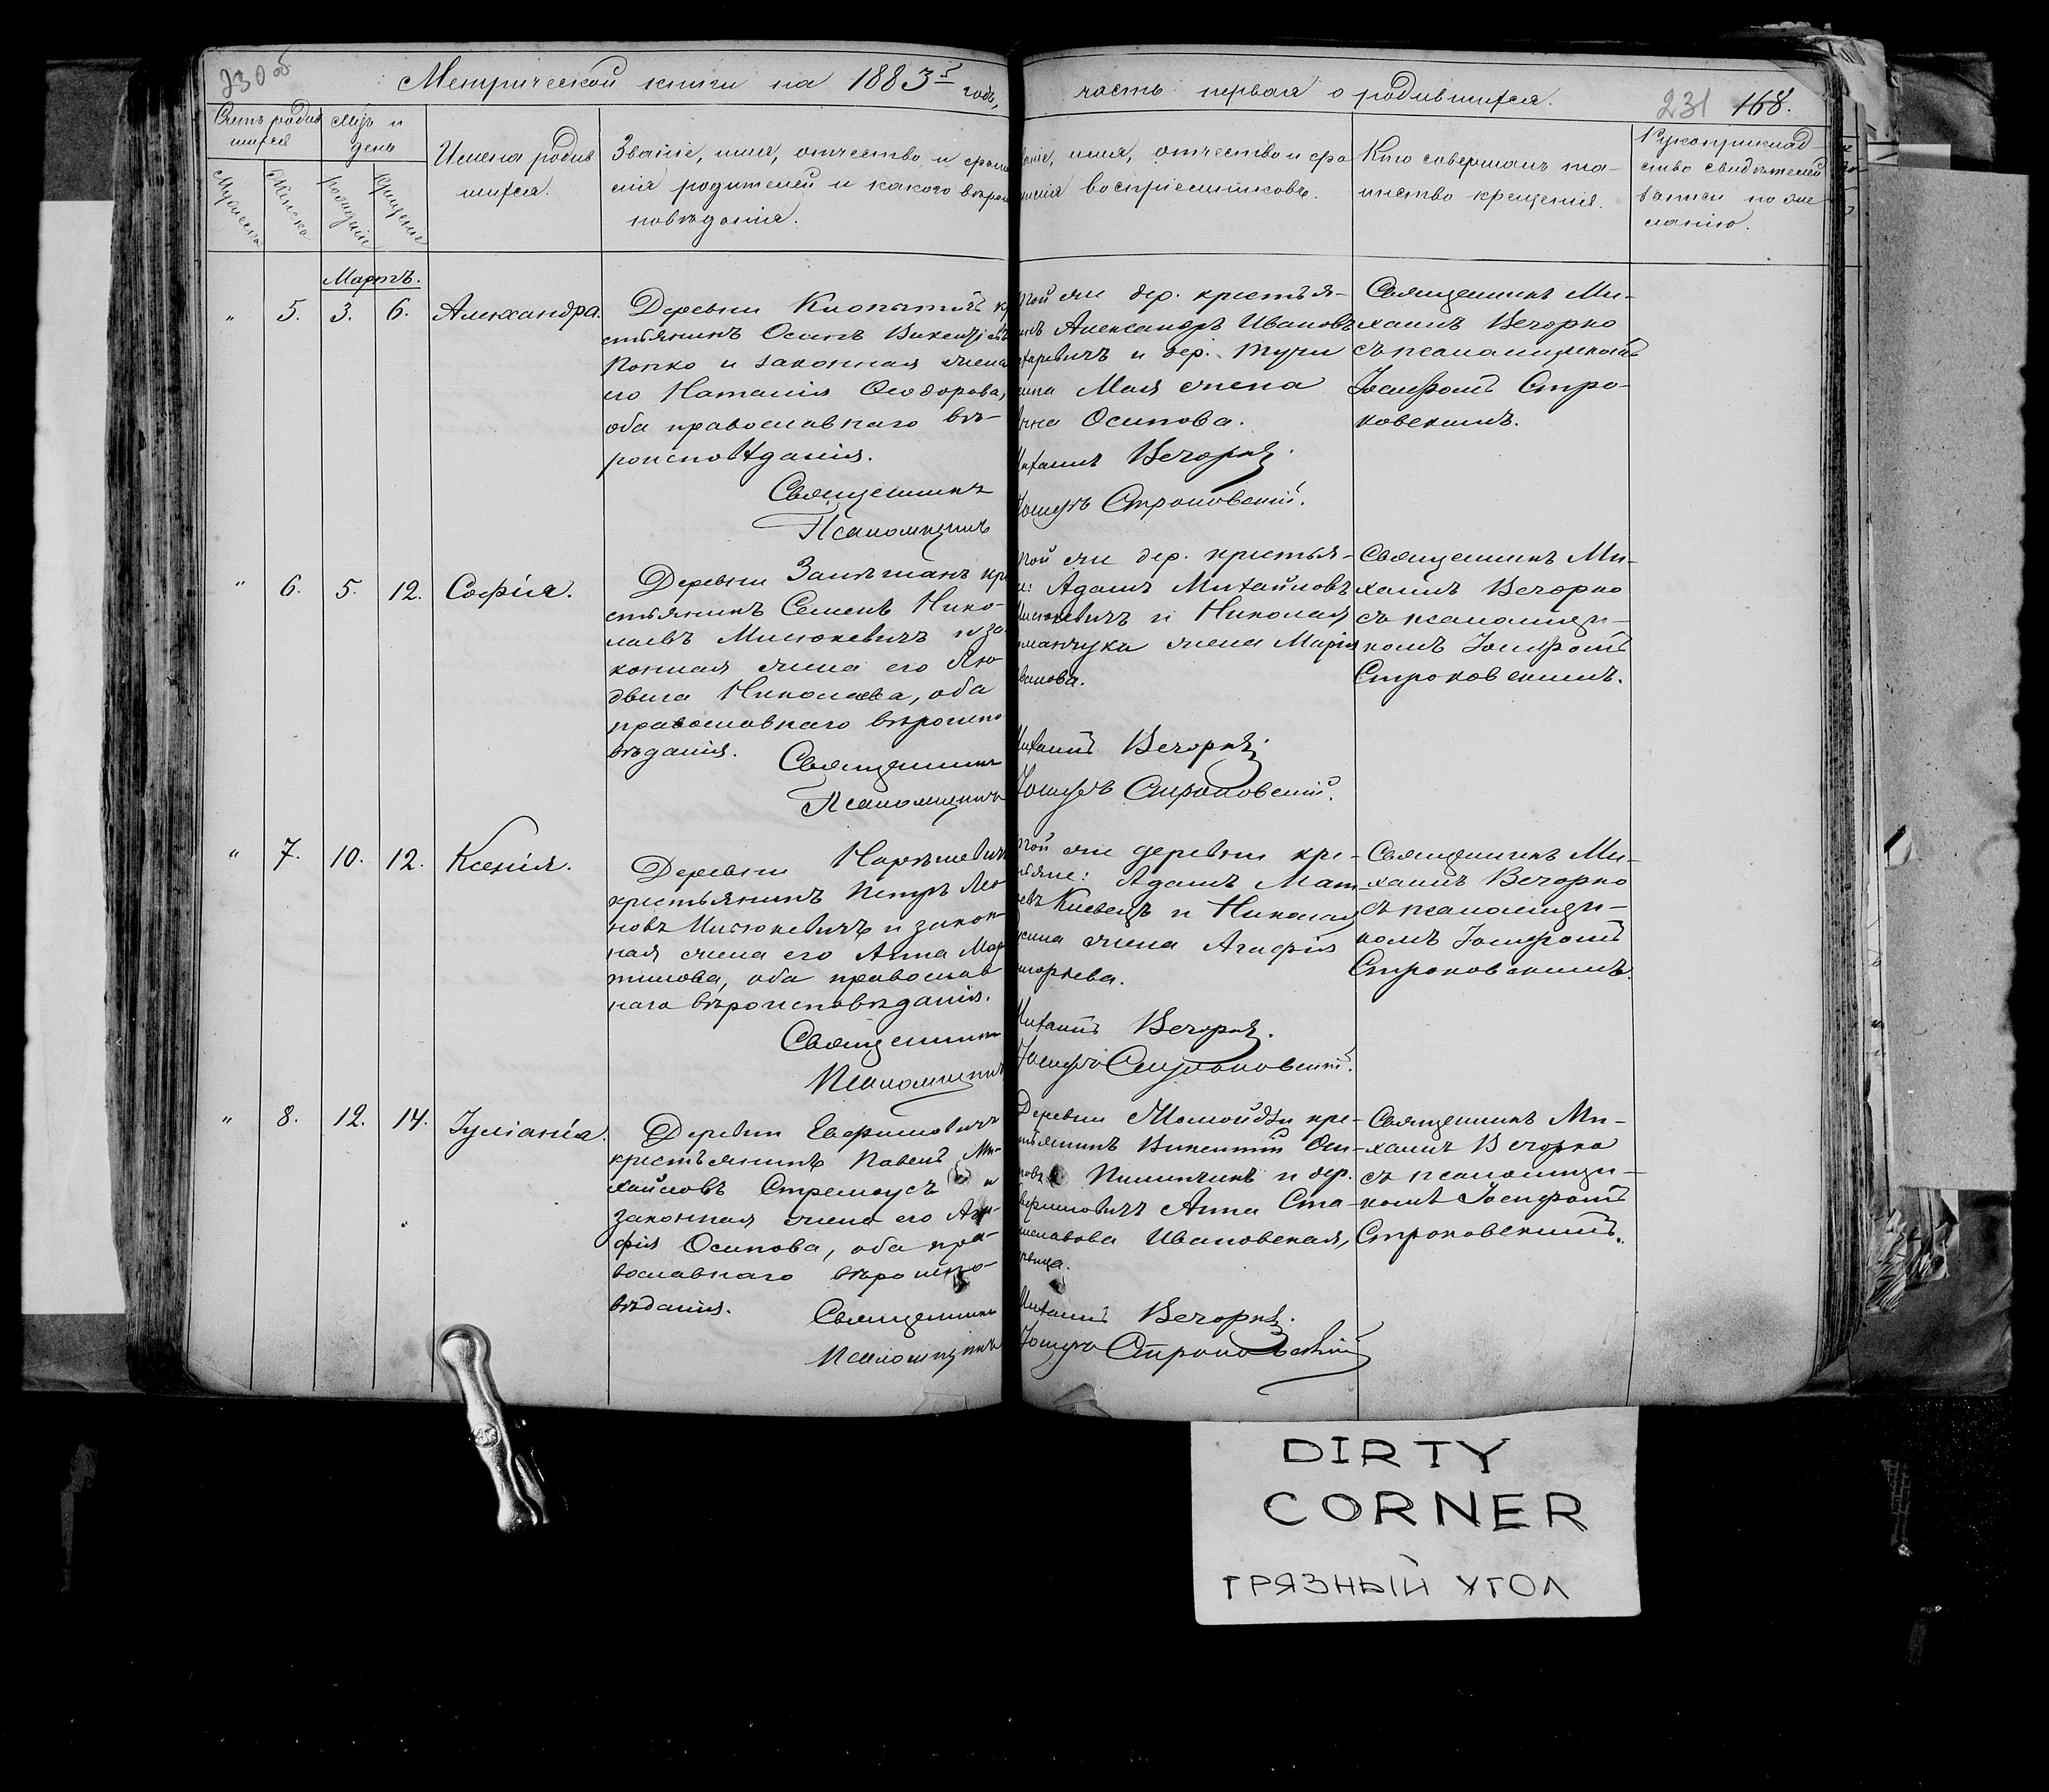 230 об
Метрической книги на 1883й годъ,
часть первая о родившихся.
231 168.
Счетъ родив
шихся
Мѣс. и
день
Мужеска
Женска
рожденія
крещенія
Имена родив
шихся.
Званіе, имя, отчество, и фами
лія родителей и какого вѣроис
повѣданія.
Званіе, имя, отчество и фа
милія воспріемниковъ.
Кто совершалъ та-
инство крещенія.
Рукоприклад
ство свидѣтелей
записи по же
ланію.
Мартъ.
" 5. 3. 6. Александра.
Деревни Клопытичъ кр
стьянинъ Осипъ Викентіевъ
Попко и законная жена
его Наталія Ѳеодорова,
оба православнаго вѣ-
роисповѣданія.
Священникъ
Псаломщикъ
той же дер. крестья-
нъ Александръ Ивановъ
и дер. Тучи
жена
Осипова.
Михаилъ Вечорко.
Іосифъ Строковскій.
Священникъ Ми-
хаилъ Вечорко
съ псаломщикомъ
Іосифомъ Стро-
ковскимъ.
" 6. 5. 12. Софія.
Деревни кр
стьянинъ Семенъ Нико-
лаевъ Мисюкевичъ и за-
конная жена его Лю-
двига Николаева, оба
православнаго вѣроиспо
вѣданія. Священникъ
Псаломщикъ
той же дер. крестья-
Адамъ Михайловъ
Мисюкевичъ и Николая
жена Марія
Иванова.
Михаилъ Вечорко.
Іосифъ Строковскій.
Священникъ Ми-
хаилъ Вечорко
съ псаломщи-
комъ Іосифомъ
Строковскимъ.
" 7. 10. 12. Ксенія.
Деревни
крестьянинъ Петръ Лео
новъ Мисюкевичъ и закон-
ная жена его Анна Мар
тинова, оба православ
наго вѣроисповѣданія.
Священникъ
Псаломщикъ
той же деревни кре-
стьяне: Адамъ Мат
и Николая
жена Агафія
Григорьева.
Михаилъ Вечорко.
Іосифъ Строковскій.
Священникъ Ми-
хаилъ Вечорко
съ псаломщи-
комъ Іосифомъ
Строковскимъ.
" 8. 12. 14. Іуліанія.
Деревни Евфимовичъ
крестьянинъ Павелъ Ми-
хайловъ Стремоусъ и
законная жена его Ага-
фія Осипова, оба пра-
вославнаго вѣроиспо-
вѣданія. Священникъ
Псаломщикъ
Деревни кре-
стьянинъ Викентій Оси-
повъ и дер.
Евфимовичъ Анна Ста-
ниславова Ивановская,
дѣвица.
Михаилъ Вечорко.
Іосифъ Строковскій
Священникъ Ми-
хаилъ Вечорко
съ псаломщи-
комъ Іосифомъ
Строковскимъ.
DIRTY
CORNER
ГРЯЗНЫЙ УГОЛ